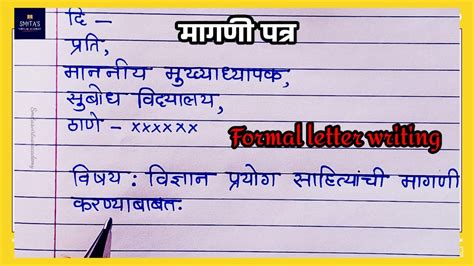 SMITA'S
मागणी पत्र
दि –
प्रति,
माननीय मुख्याध्यापक,
सुबोध विद्यालय,
ठाणे – xxxxxx
Formal letter writing
विषय : विज्ञान प्रयोग साहित्यांची मागणी
करण्याबाबत.